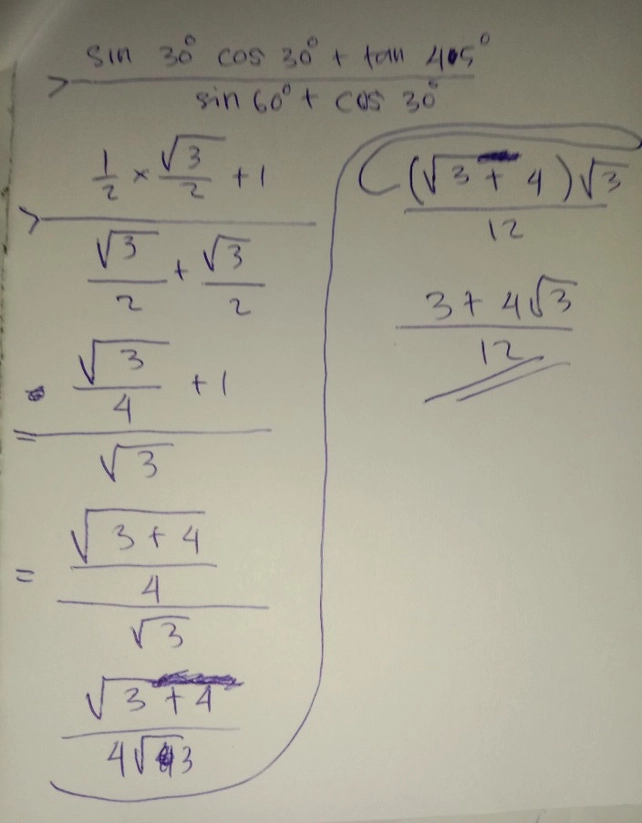 sin 30° cos 30° + tan 405°
>
sin 60° + cos 30°
1/2 × √3/2 + 1
>
√3/2 + √3/2
√3/4 + 1
=
√3
√3+4
4
=
√3
√3 + 4
4√3
(√3 + 4)√3
12
3 + 4√3
12